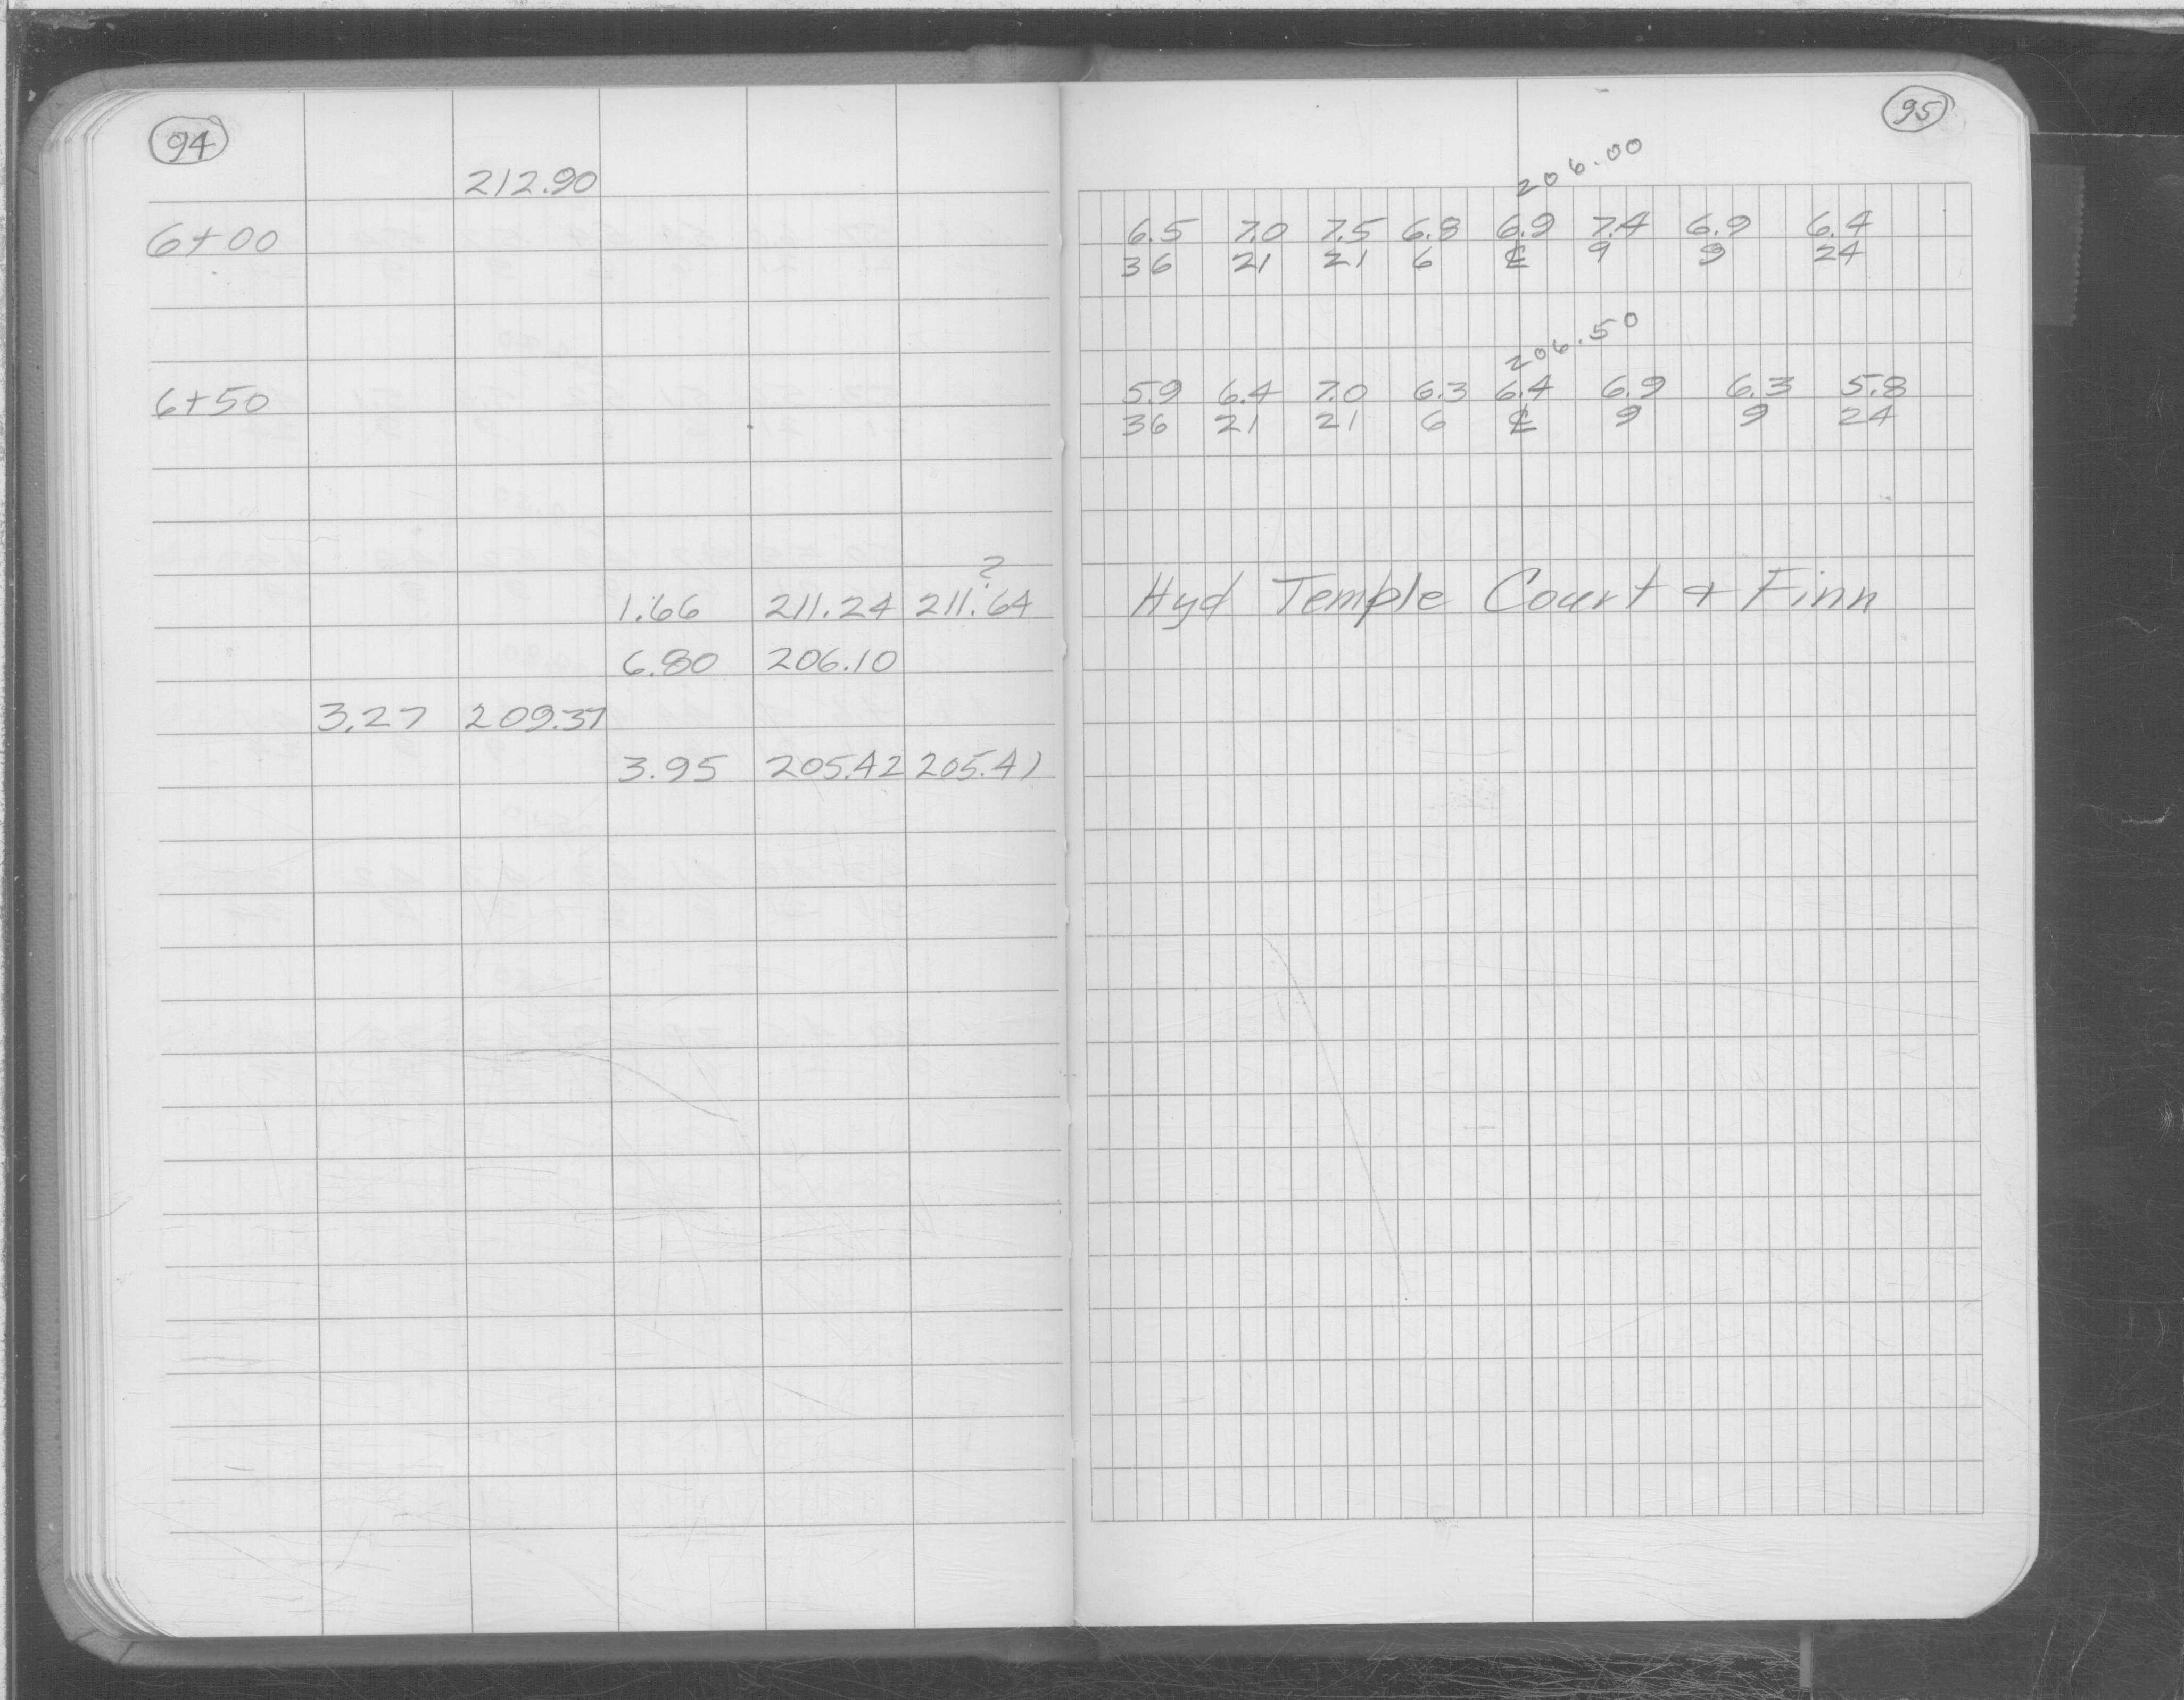 94
212.90
6+00
6+50
?
1.66 211.24 211.64
6.80 206.10
3.27 209.37
3.95 205.42 205.41
95
206.00
6.5 7.0 7.5 6.8 6.9 7.4 6.9 6.4
36 21 21 6 ℄ 9 9 24
206.50
5.9 6.4 7.0 6.3 6.4 6.9 6.3 5.8
36 21 21 6 ℄ 9 9 24
Hyd Temple Court & Finn